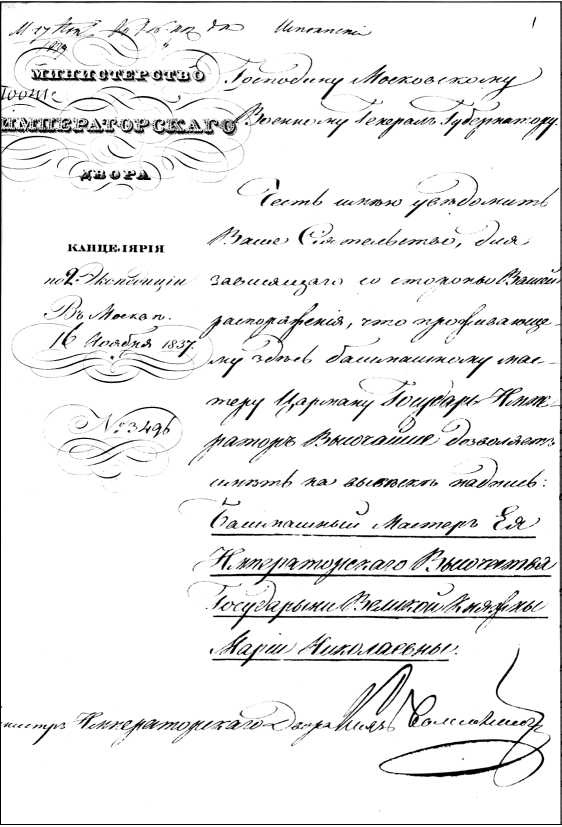 1
МИНИСТЕРСТВО
ИМПЕРАТОРСКАГО
ДВОРА
КАНЦЕЛЯРІЯ
по 2. Экспедиціи
Въ Москвѣ.
16 Ноября 1837.
№ 3496
Господину Московскому
Военному Генералъ Губернатору.
Честь имѣю увѣдомить
Ваше Сіятельство, для
зависящаго со стороны Вашей
распоряженія, что проживающе-
му здѣсь башмашному мас-
теру Цармаку Государь Импе-
раторъ Высочайше дозволяетъ
имѣть на вывѣскѣ надпись:
Башмашный Мастеръ Ея
Императорскаго Высочества
Государыни Великой Княжны
Маріи Николаевны.
Министръ Императорскаго Двора Князь